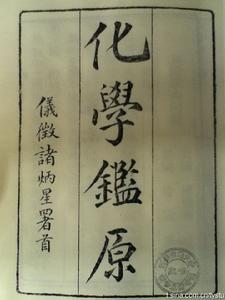 化學鑑原
儀徵諸炳星署首
t.sina.com.cn/tystu